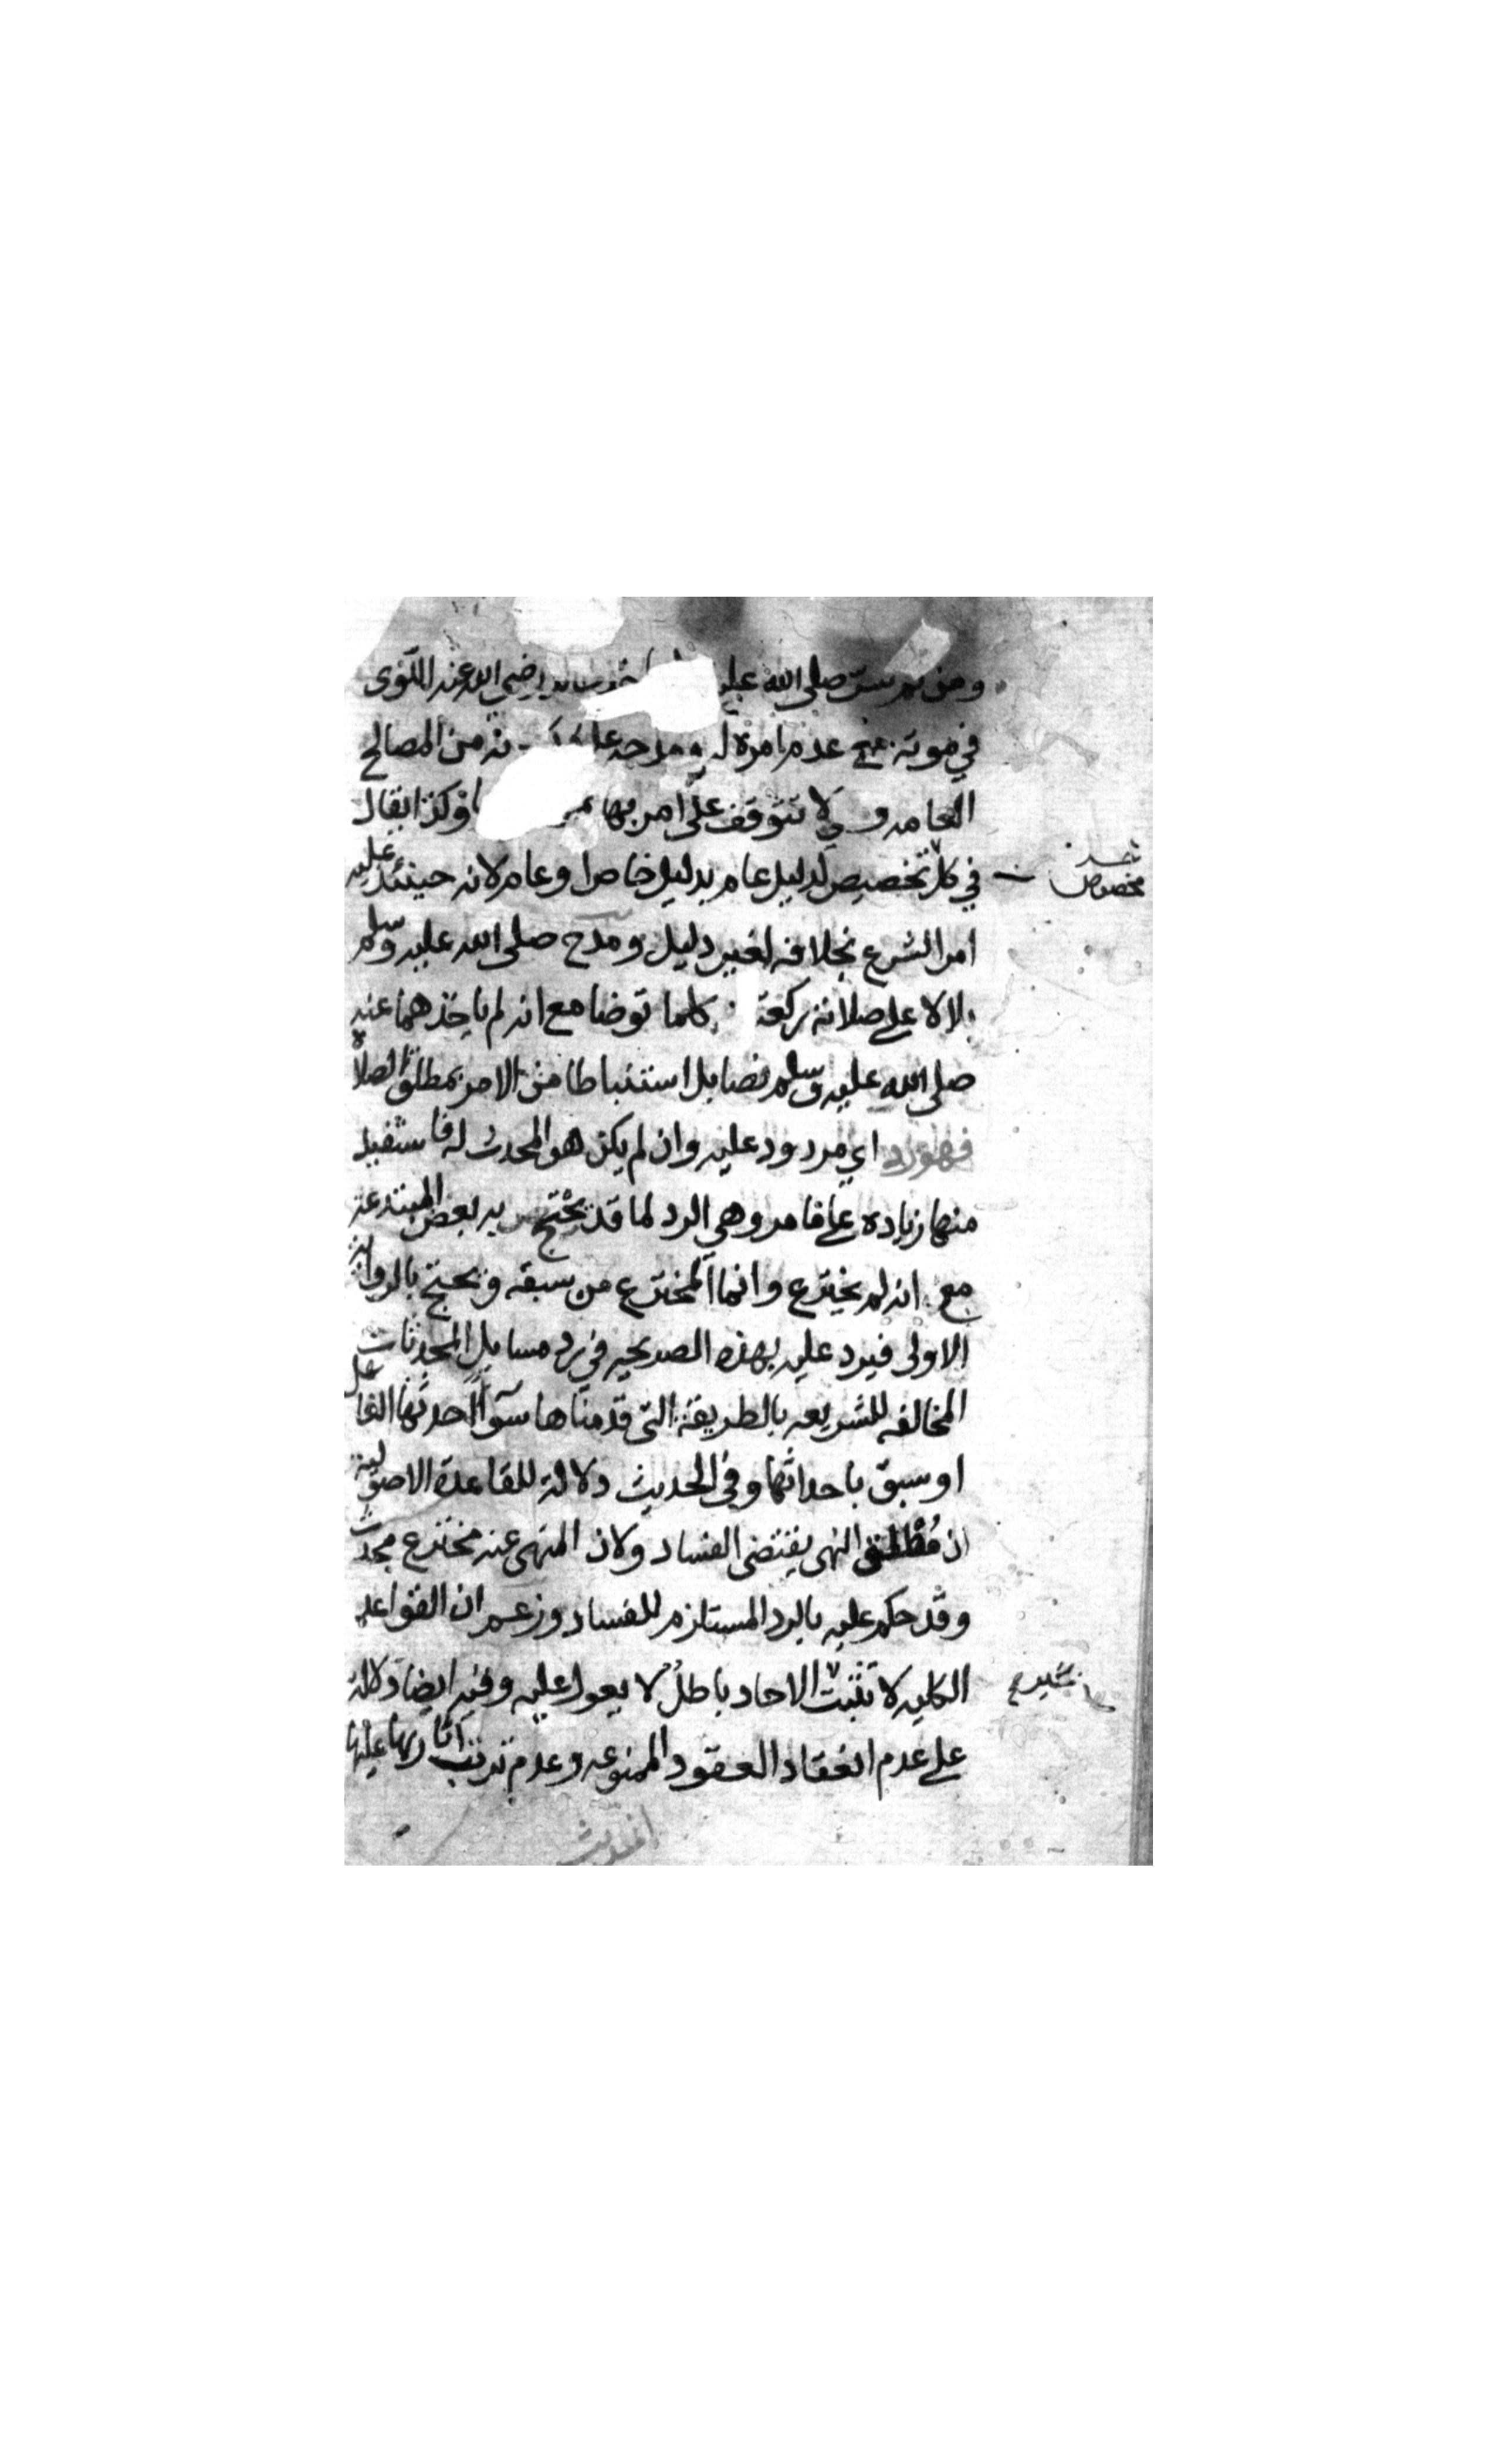 ومن ثم سر صلى الله عليه رضي الله عنه اللتوى
في موته مع عدم امره له ومدحه على من المصالح
العامه ولا تتوقف على امر بها وكذا يقال
في كل تخصيص لدليل عام بدليل خاص او عام لانه حينئذ عليه
مخصوص
امر الشرع بخلافه لغير دليل ومدح صلى الله عليه وسلم
بلالا على صلاته ركعتي كلما توضا مع انه لم ياخذهما عنه
صلى الله عليه وسلم نصا بل استنباطا من الامر بمطلق الصلاة
فهو رد اي مردود عليه وان لم يكن هو المحدث له فاستفيد
منها زياده على ما مر وهي الرد لما قد يحتج به بعض المبتدعة
مع انه لم يخترع وانما المخترع من سبقه ويحتج بالرواية
الاولى فيرد عليه بهذه الصريحه في رد مسايل المحدثات
المخالفه للشريعه بالطريقة التي قدمناها سوآ احدثها الفاعل
او سبق باحداثها وفي الحديث دلالة للقاعدة الاصولية
ان مطلق النهي يقتضي الفساد ولان المنهي عنه مخترع محدث
وقد حكم عليه بالرد المستلزم للفساد وزعم ان القواعد
الكليه لا تثبت الاحاد باطل لا يعول عليه وفيه ايضا دلالة
على عدم انعقاد العقود الممنوعه وعدم ترتب اثارها عليها
الحديث